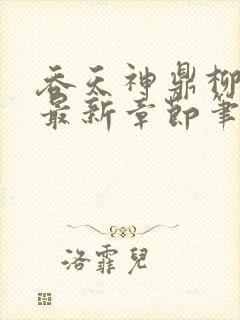 吞天神鼎柳
最新章節筆
洛霏兒